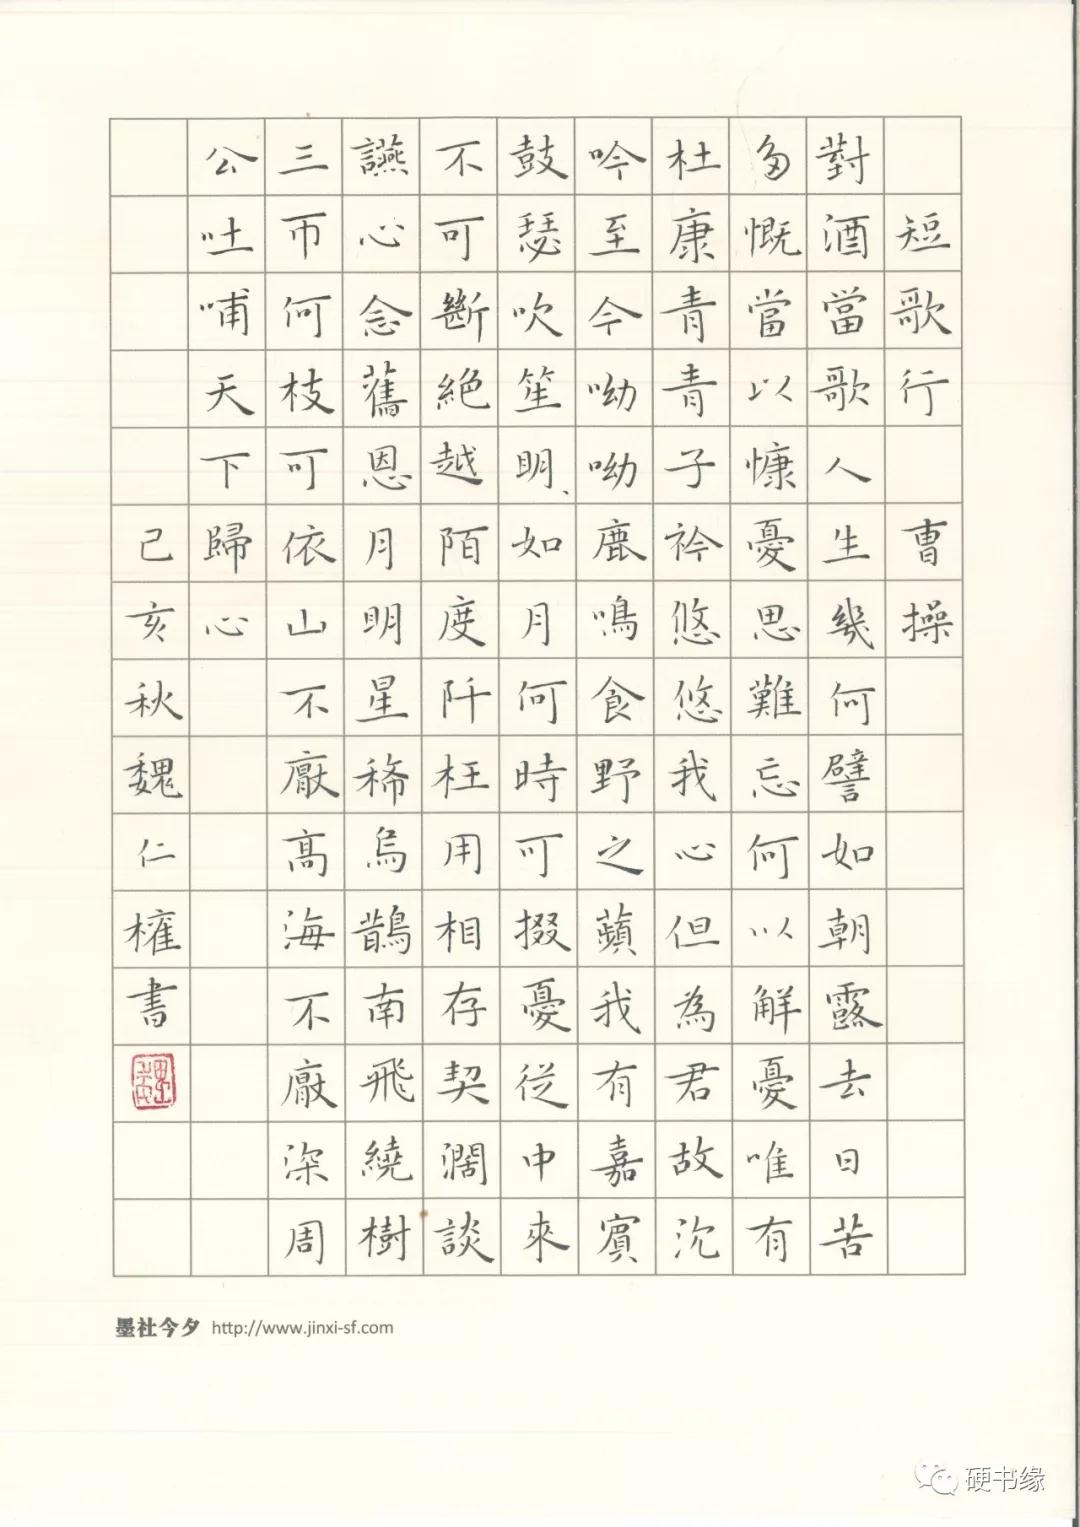 短歌行 曹操
對酒當歌人生幾何譬如朝露去日苦
多慨當以慷憂思難忘何以解憂唯有
杜康青青子衿悠悠我心但為君故沈
吟至今呦呦鹿鳴食野之蘋我有嘉賓
鼓瑟吹笙明明如月何時可掇憂從中來
不可斷絕越陌度阡枉用相存契闊談
讌心念舊恩月明星稀烏鵲南飛繞樹
三帀何枝可依山不厭高海不厭深周
公吐哺天下歸心
己亥秋魏仁權書
墨社今夕 http://www.jinxi-sf.com
硬书缘